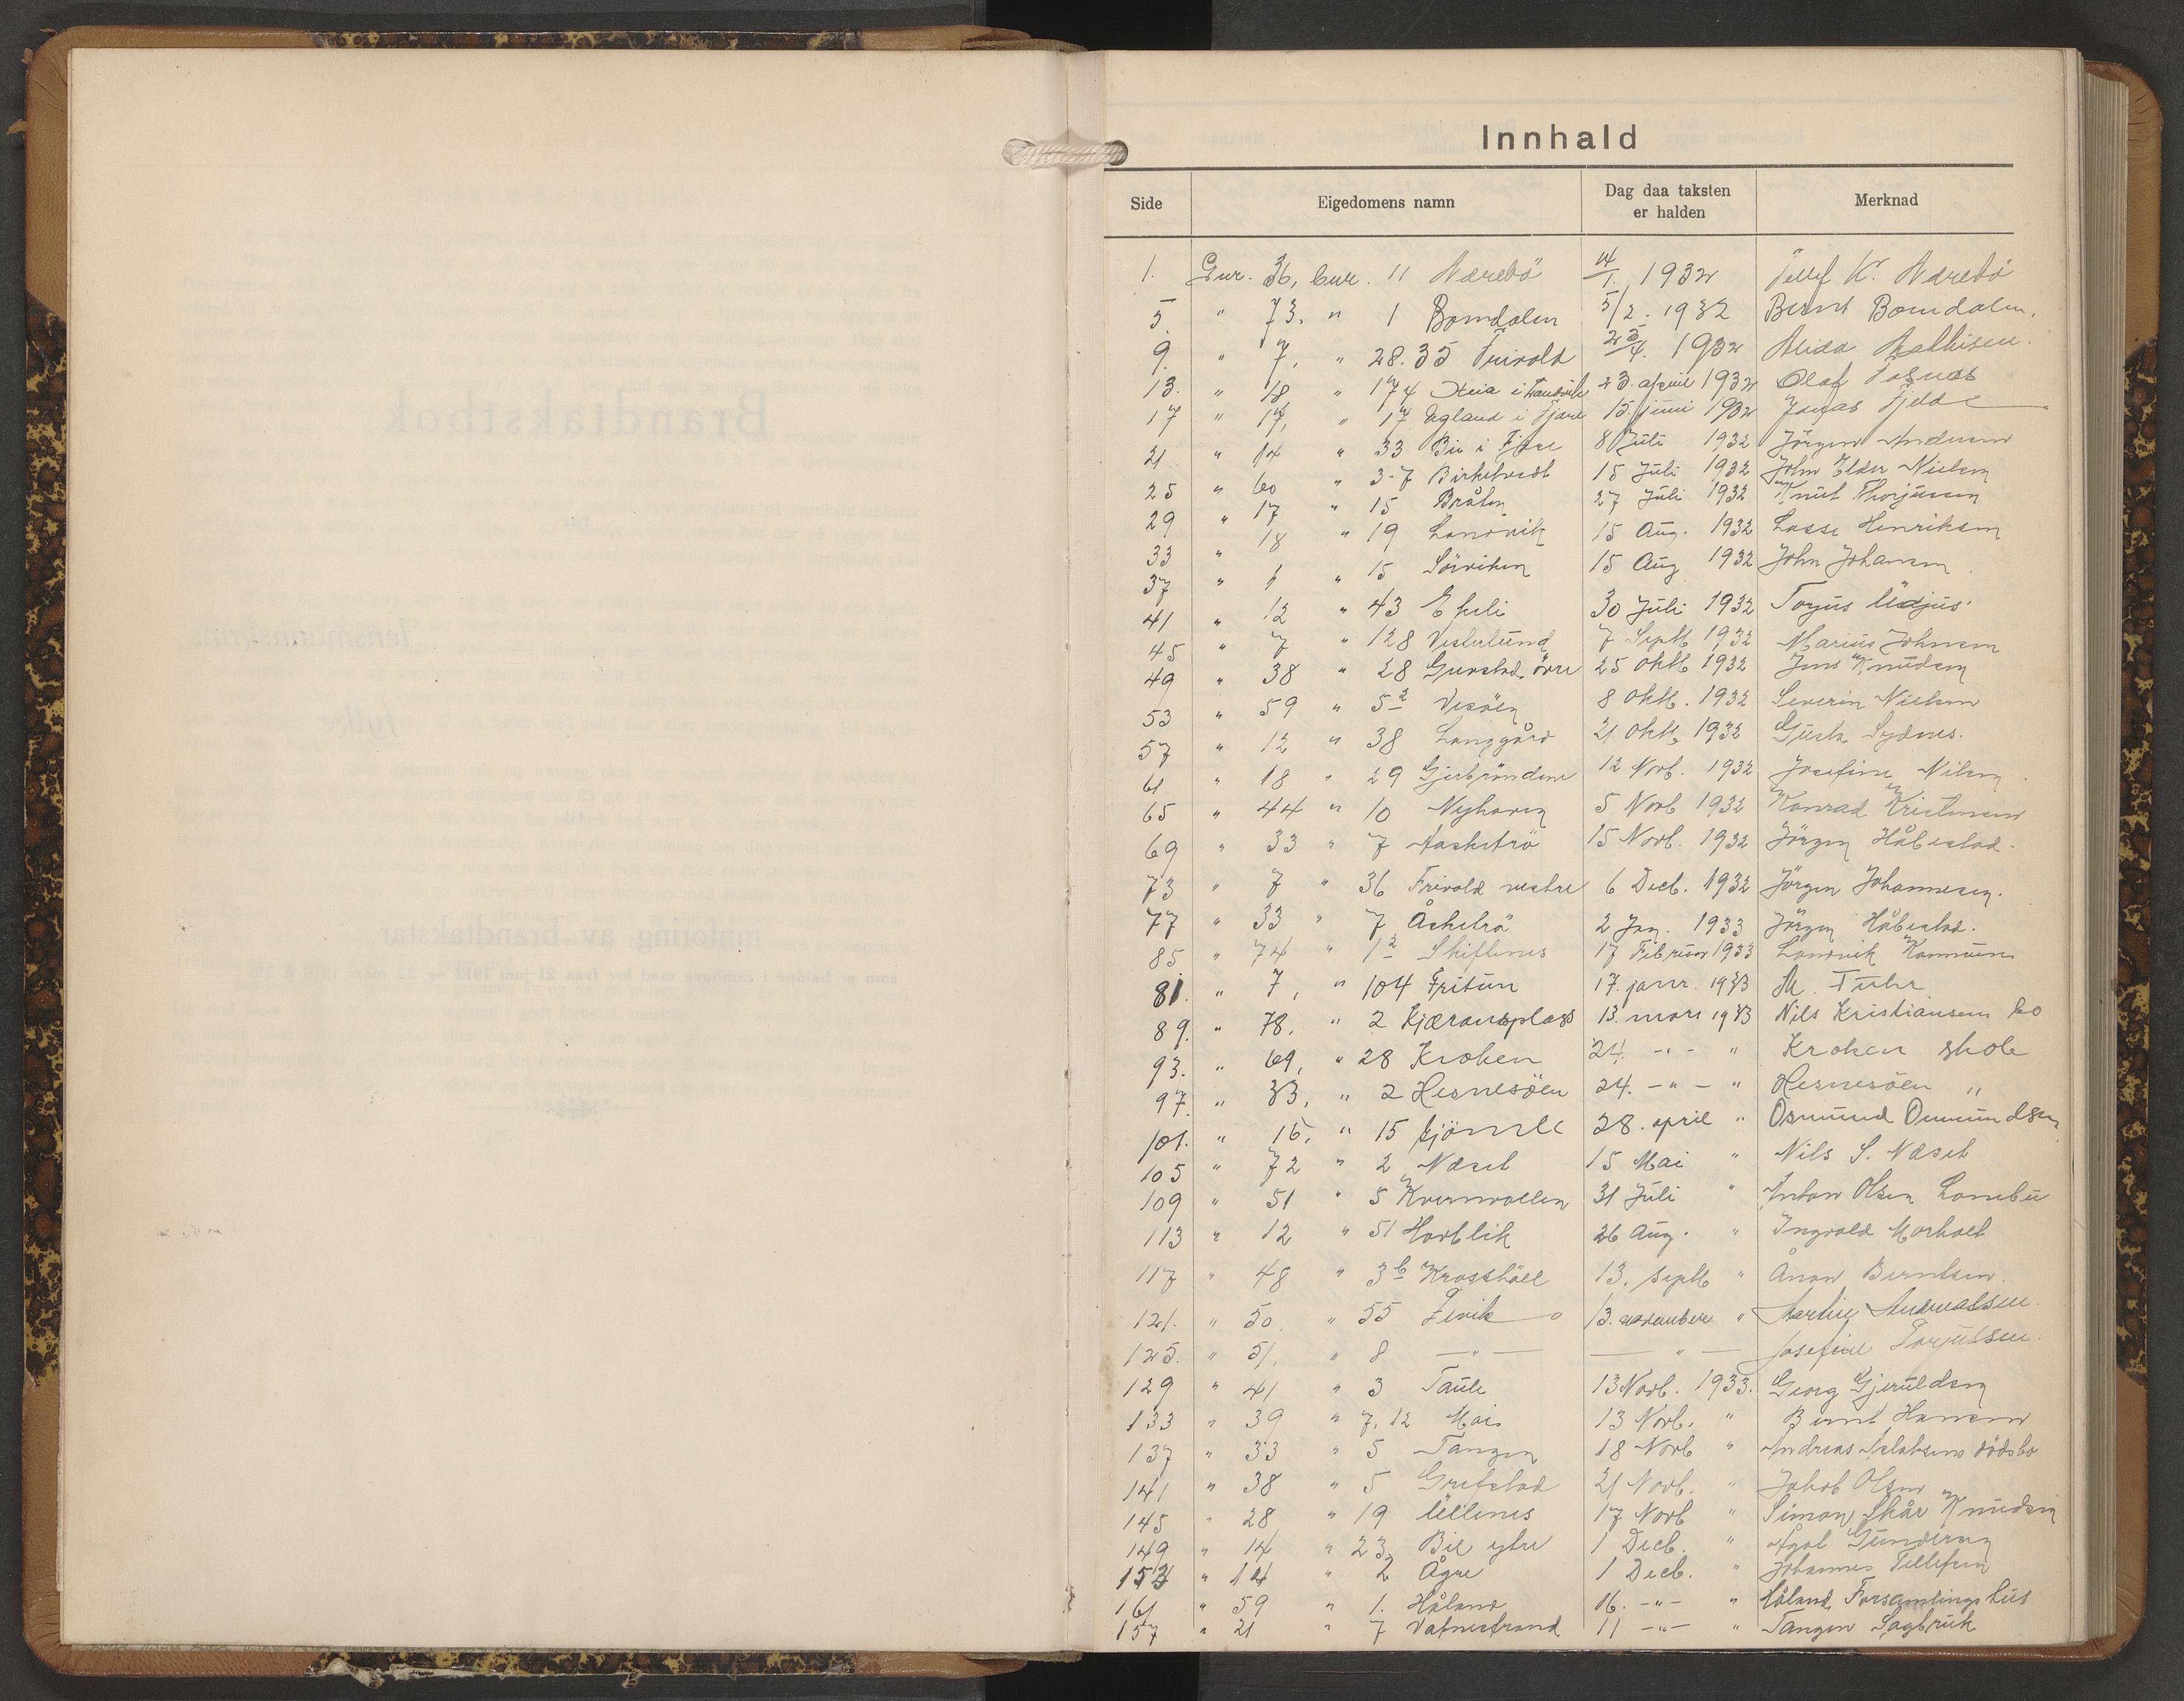 Innhald
Side Eigedomens namn Dag daa taksten er halden Merknad
1. Gnr. 36, bnr. 11 Nærebö 4/1. 1932 Tellef K. Nærebö
5. " 73. " 1 Bomdalen 5/2. 1932 Bernt Bomdalen.
9. " 7, " 28.35 Frivold 25/4. 1932
13. " 18 " 174 Heia i Landvik 23. april 1932 Olaf
17 " 17, " 17 Egland i Fjære 15. juni 1932 Jonas Fjelde
21 " 14 " 33 Bie i Fjære 8 Juli 1932 Jörgen Andersen
25 " 60 " 3-7 Birketvedt 15 Juli 1932 John Elder Nielsen
29 " 17 " 15 Bråten 27 Juli 1932 Knut Thorjussen
33 " 18 " 19 Landvik 15 Aug. 1932 Lasse Henriksen
37 " 1 " 15 Sörviken 15 Aug 1932 John Johansen
41 " 12 " 43 Ekeli 30 Juli 1932 Torjus
45 " 7 " 128 Vesterlund 7 Septb 1932 Marius Johnsen
49 " 38 " 28 övre 25 Oktb 1932 Jens Knudsen
53 " 59 " 5 2 Vesöen 8 Oktb. 1932 Severin Nielsen
57 " 12 " 38 Langgård 21 Oktb 1932 Sydnes.
61 " 18 " 29 Gjerbröndene 12 Novb. 1932 Josefine Nilsen
65 " 44 " 10 Nyhaven 5 Novb 1932 Konrad Kristensen
69 " 33 " 7 Aasketrö 15 Novb. 1932 Jörgen Håbestad.
73 " 7 " 36 Frivold vestre 6 Decb. 1932 Jörgen Johannesen.
77 " 33 " 7 Åsketrö 2 Jan. 1933 Jörgen Håbestad.
85 " 74 " 1 2 Skiftenes 17 Februar 1933 Landvik Kommune
81. " 7, " 104 Fritun 17. janr. 1933 Fuhr
89. " 78, " 2 Kjæransplass 13. mars 1933 Nils Kristiansen bo
93. " 69, " 28 Kroken 24. -"- " Kroken skole
97. " 83, " 2 Hesnesöen 24. -"- " Hesnesöen "
101. " 16, " 15 Gjömle 28. april " Osmund Osmundsen
105 " 72 " 2 Næset 15 Mai " Nils S. Næset
109 " 51 " 5 Kvernvollen 31 Juli " Anton Olsen Lonebu
113 " 12 " 51 Havblik 26 Aug. " Ingvald Morholt
117 " 48 " 3 b Krosshöll 13. septb " Ånon Berntsen
121. " 50 " 55 Fevik 13. november " Martin Andreassen.
125. " 51. " 8 —"— —"— Josefine Torjussen.
129 " 41 " 3 Taule 13 Novb. 1933. Georg Gjeruldsen
133 " 39 " 7, 12 Moi 13 Novb. " Bernt Hansen
137 " 33 " 5 Tangen 18 Novb " Andreas Jakobsens dödsbo
141 " 38 " 5 Grefstad 21 Novb. " Jakob Olsen
145 " 28 " 19 Ullenes 17 Novb " Simon Skår Knudsen
149 " 14 " 23 Bie ytre 1 Decb. " Gundersen
153 " 14 " 2 Ågre 1 Decb. " Johannes Tellefsen
161 " 59 " 1. Håland 16. -"- " Håland Forsamlingshus
157 " 21 " 7 Vatnestrand 11 -"- " Tangen Sagbruk